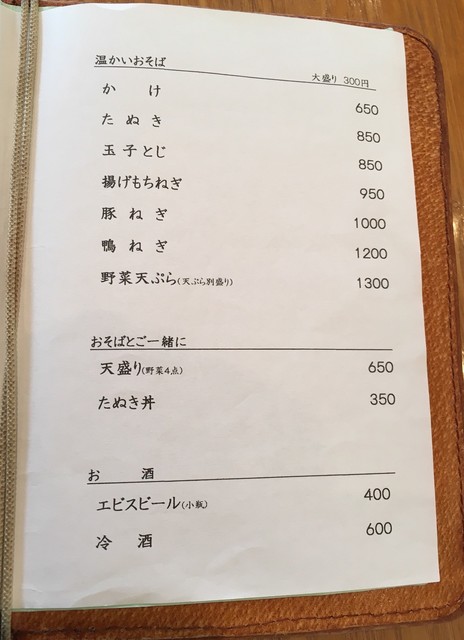 温かいおそば
大盛り 300円
かけ 650
たぬき 850
玉子とじ 850
揚げもちねぎ 950
豚ねぎ 1000
鴨ねぎ 1200
野菜天ぷら(天ぷら別盛り) 1300
おそばとご一緒に
天盛り(野菜4点) 650
たぬき丼 350
お酒
エビスビール(小瓶) 400
冷酒 600